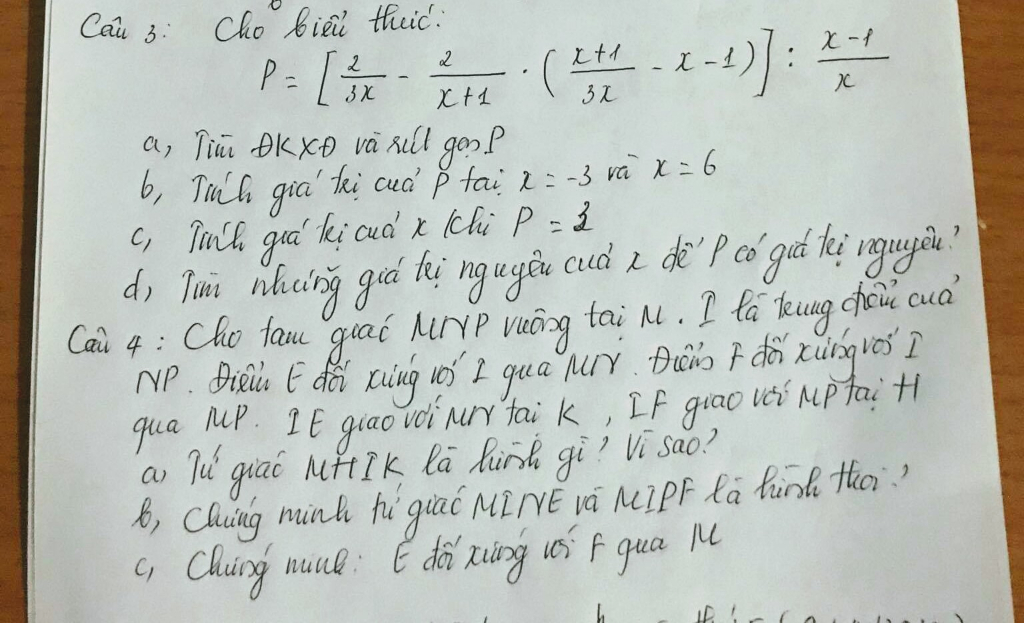 Câu 3: Cho biểu thức:
P = [ 2/3x - 2/x+1 . ( x+1/3x - x - 1 ) ] : x-1/x
a, Tìm ĐKXĐ và rút gọn P
b, Tính giá trị của P tại x = -3 và x = 6
c, Tính giá trị của x khi P =
d, Tìm những giá trị nguyên của x để P có giá trị nguyên?
Câu 4 : Cho tam giác MNP vuông tại M. I là trung điểm của
NP. Điểm E đối xứng với I qua MN. Điểm F đối xứng với I
qua MP. IE giao với MN tại K, IF giao với MP tại H
a, Tứ giác MHIK là hình gì? Vì sao?
b, Chứng minh tứ giác MINE và MIPF là hình thoi?
c, Chứng minh: E đối xứng với F qua M